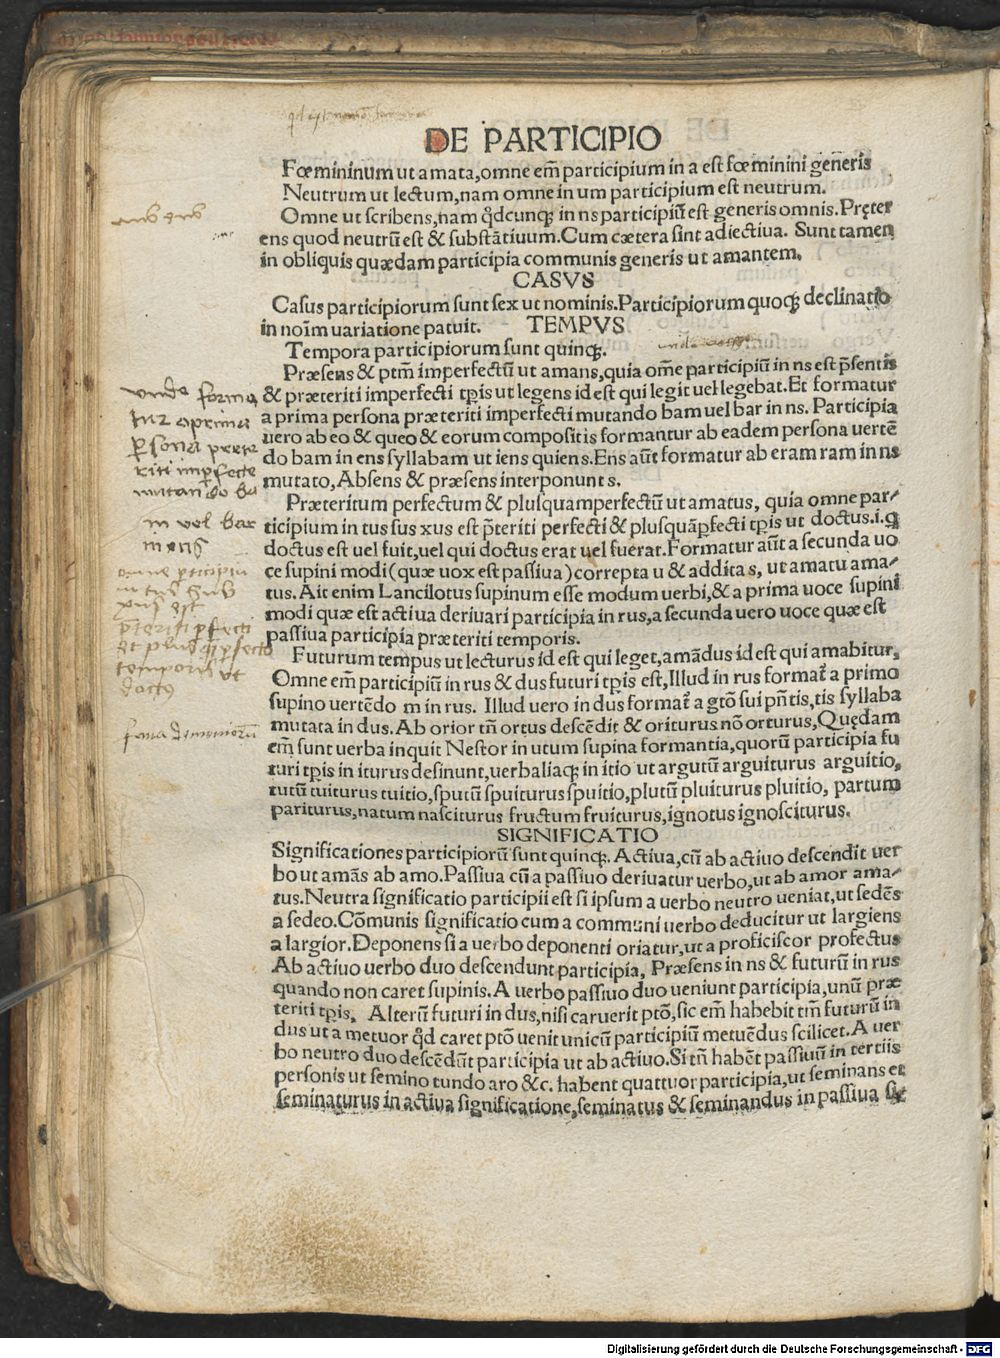 DE PARTICIPIO
Fœmininum ut amata,omne em̄ participium in a est fœminini generis
Neutrum ut lectum,nam omne in um participium est neutrum.
Omne ut scribens,nam qd̄cunqȝ in ns participiū est generis omnis.Pręter
ens quod neutrū est & substātiuum.Cum cætera sint adiectiua. Sunt tamen
in obliquis quædam participia communis generis ut amantem.
CASVS
Casus participiorum sunt sex ut nominis.Participiorum quoqȝ declinatio
in noīm uariatione patuit. TEMPVS
Tempora participiorum sunt quinqȝ.
Præsens & ptm̄ imperfectū ut amans,quia om̄e participiū in ns est p̄sentis
& præteriti imperfecti tp̄is ut legens id est qui legit uel legebat.Et formatur
a prima persona præteriti imperfecti mutando bam uel bar in ns. Participia
uero ab eo & queo & eorum compositis formantur ab eadem persona uertē
do bam in ens syllabam ut iens quiens.Ens aūt formatur ab eram ram in ns
mutato,Absens & præsens interponunt s.
Præteritum perfectum & plusquamperfectū ut amatus, quia omne par-
ticipium in tus sus xus est p̄teriti perfecti & plusquāꝑfecti tp̄is ut doctus.i.q
doctus est uel fuit,uel qui doctus erat uel fuerat.Formatur aūt a secunda uo
ce supini modi(quæ uox est passiua)correpta u & addita s, ut amatu ama-
tus.Ait enim Lancilotus supinum esse modum uerbi,& a prima uoce supini
modi quæ est actiua deriuari participia in rus,a secunda uero uoce quæ est
passiua participia præteriti temporis.
Futurum tempus ut lecturus id est qui leget,amādus id est qui amabitur.
Omne em̄ participiū in rus & dus futuri tp̄is est,Illud in rus format̄ a primo
supino uertēdo m in rus. Illud uero in dus format̄ a gtō sui pn̄tis,tis syllaba
mutata in dus.Ab orior tn̄ ortus descēdit & oriturus nō orturus,Quędam
em̄ sunt uerba inquit Nestor in utum supina formantia,quorū participia fu
turi tp̄is in iturus desinunt,uerbaliaqȝ in itio ut argutū arguiturus arguitio,
tutū tuiturus tuitio,sputū spuiturus spuitio,plutū pluiturus pluitio, partum
pariturus,natum nasciturus fructum fruiturus,ignotus ignosciturus.
SIGNIFICATIO
Significationes participiorū sunt quinqȝ. Actiua,cū ab actiuo descendit uer
bo ut amās ab amo.Passiua cū a passiuo deriuatur uerbo,ut ab amor ama-
tus.Neutra significatio participii est si ipsum a uerbo neutro ueniat,ut sedēs
a sedeo.Cōmunis significatio cum a communi uerbo deducitur ut largiens
a largior.Deponens si a uerbo deponenti oriatur,ut a proficiscor profectus
Ab actiuo uerbo duo descendunt participia, Præsens in ns & futurū in rus
quando non caret supinis.A uerbo passiuo duo ueniunt participia,unū præ
teriti tp̄is. Alterū futuri in dus,nisi caruerit ptō,sic em̄ habebit tm̄ futurū in
dus ut a metuor qd̄ caret ptō uenit unicū participiū metuēdus scilicet.A uer
bo neutro duo descēdūt participia ut ab actiuo.Si tn̄ habēt passiuū in tertiis
personis ut semino tundo aro &c. habent quattuor participia,ut seminans et
seminaturus in actiua significatione,seminatus & seminandus in passiua Si
ens ens
unde forma
tur a prima
ꝑsona prete
riti imꝑfecte
mutando ba
m vel bar
in ens
omne ꝑticipiū
in tus sus
xus est
p̄teriti ꝑfecti
et plusqꝫ ꝑfecto
temporis ut
doctus
Digitalisierung gefördert durch die Deutsche Forschungsgemeinschaft - DFG